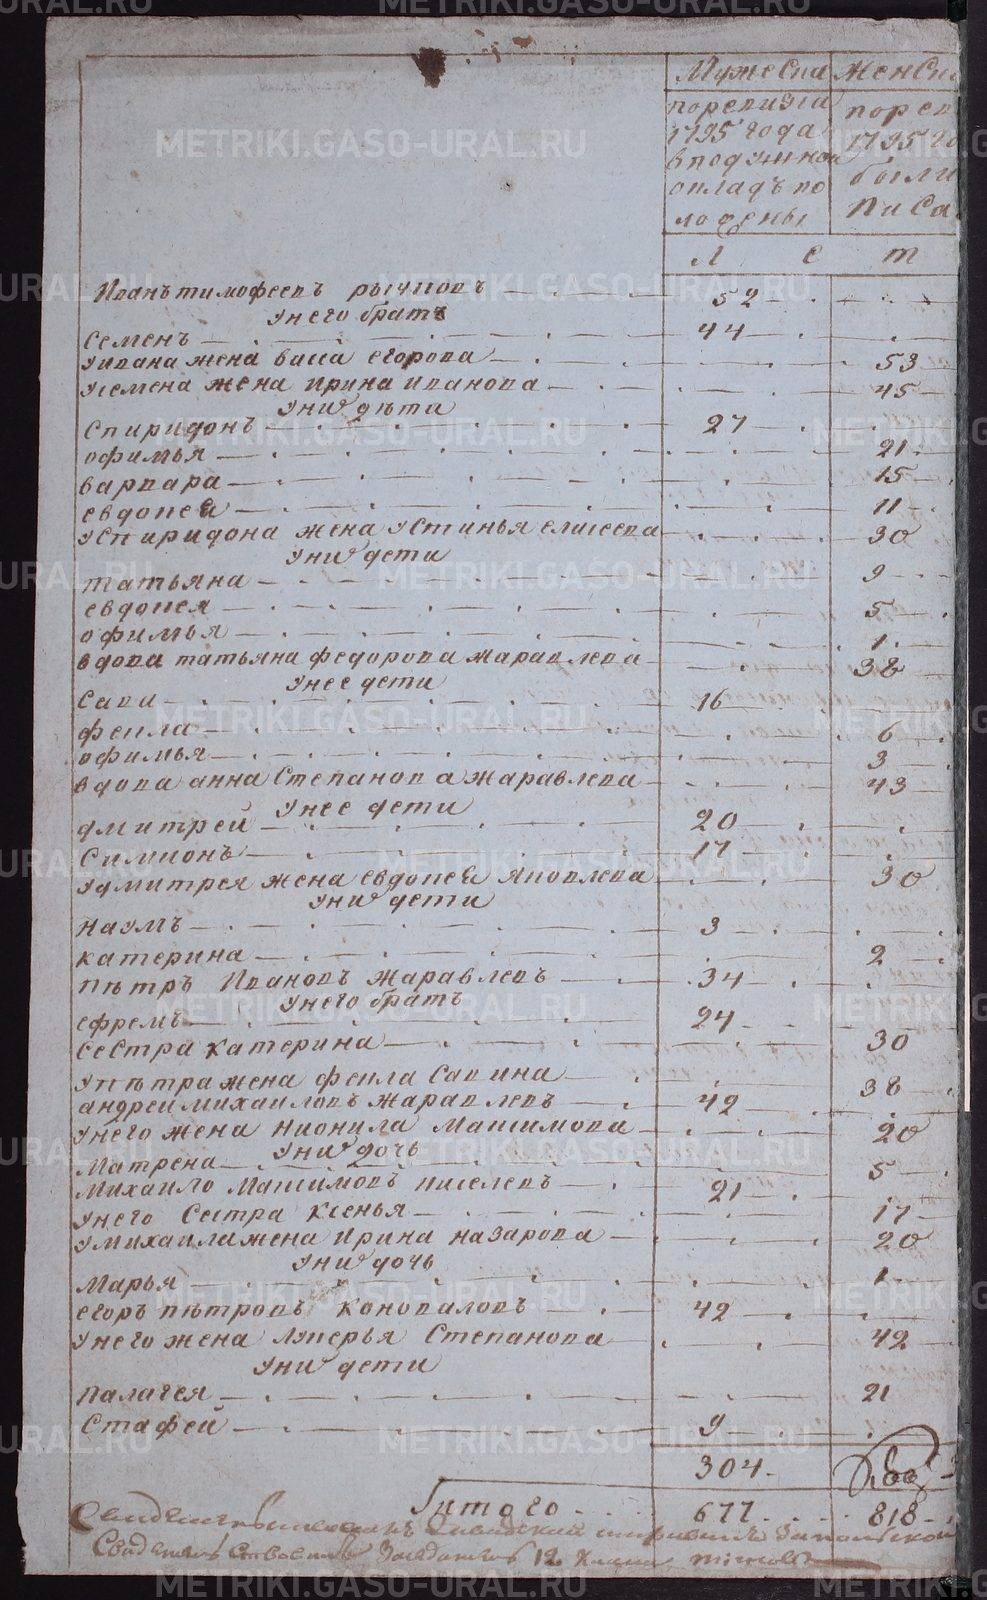 Мужеска Женска
поревизiи
1795 года
вподушной
окладъ по
ложены
порев
1795 го
были
писа
Л С т
Иванъ тимофеевъ рычковъ 52
унего братъ
Семенъ 44
уивана жена васса егорова 53
усемена жена ирина иванова 45
уних дѣти
Спиридонъ 27
офимья 21
варвара 15
евдокея 11
успиридона жена устинья елисеева 30
уних дети
татьяна 9
евдокея 5
офимья 1
вдова татьяна федорова жаравлева 38
унее дети
Сава 16
фекла 6
офимья 3
вдова анна Степанова жаравлева 43
унее дети
дмитрей 20
Симионъ 17
удмитрея жена евдокея яковлева 30
уних дети
наумъ 3
катерина 2
пѣтръ Ивановъ жаравлевъ 34
унего братъ
ефремъ 24
сестра катерина 30
упѣтра жена фекла Савина 38
андреи михаиловъ жаравлевъ 42
унего жена нионила Максимова 20
уних дочь
Матрена 5
Михаило Максимовъ киселевъ 21
унего Сестра ксенья 17
умихаила жена ирина назарова 20
уних дочь
Марья 1
егоръ пѣтровъ коноваловъ 42
унего жена лукерья Степанова 42
уних дети
палагея 21
Стафей 9
304
итого 677 818
12 Класа
METRIKI.GASO-URAL.RU